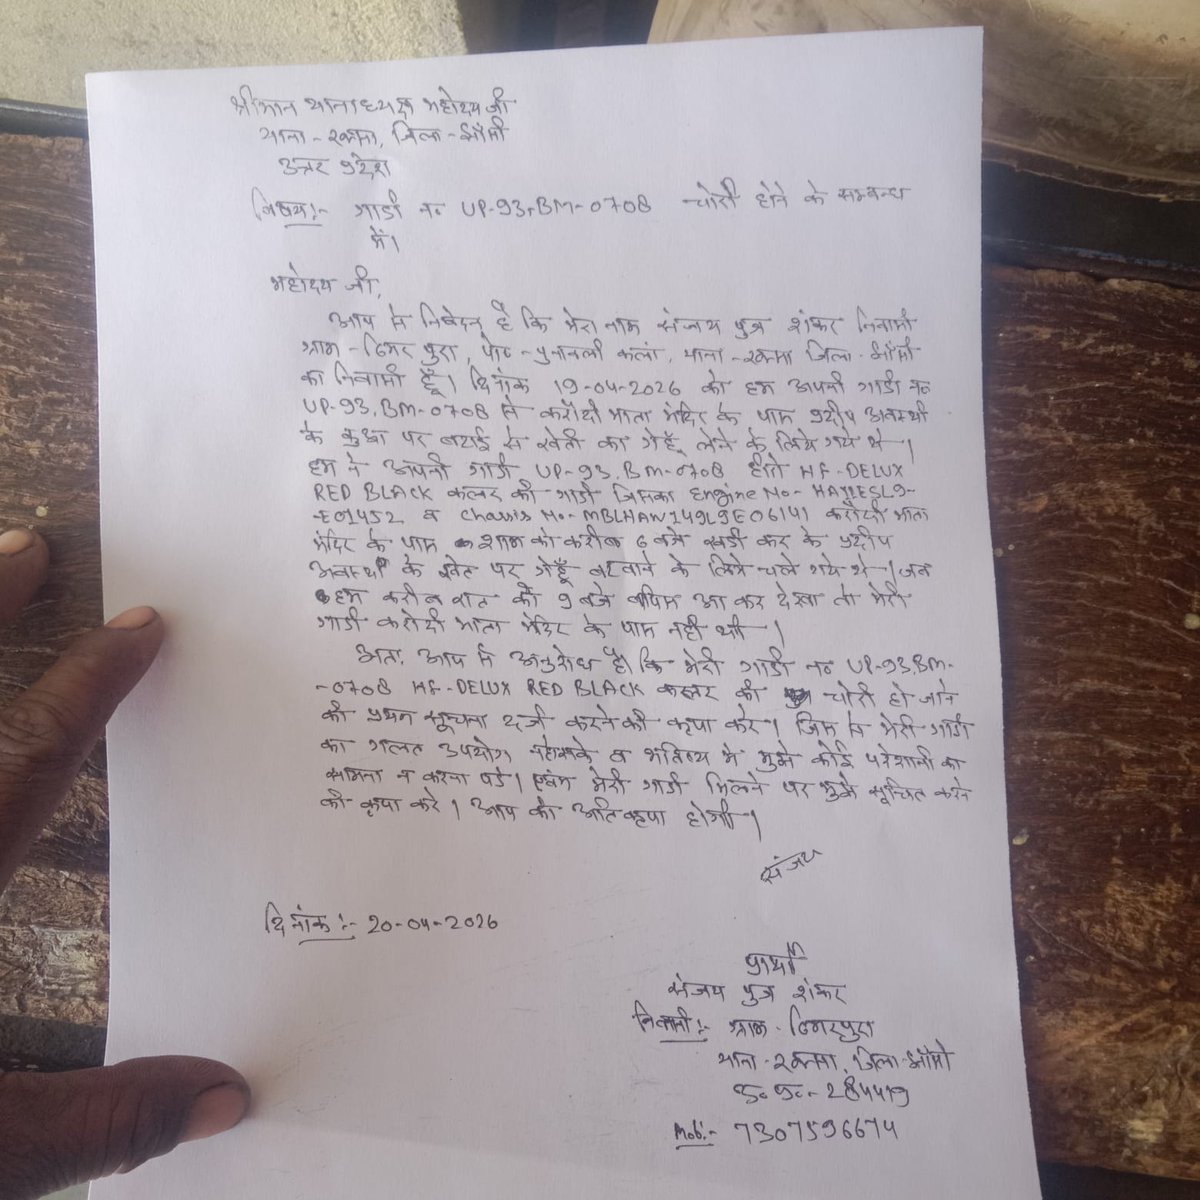 श्रीमान थानाध्यक्ष महोदय जी
थाना - रक्सा, जिला - झाँसी
उत्तर प्रदेश
विषय:- गाडी नं UP-93, BM-0708 चोरी होने के सम्बन्ध
में।
महोदय जी,
आप से निवेदन है कि मेरा नाम संजय पुत्र शंकर निवासी
ग्राम - ढिमर पुरा, पोo - पुनावली कलां, थाना - रक्सा जिला - झाँसी
का निवासी हूँ। दिनांक 19-04-2026 को हम अपनी गाडी नo
UP-93, BM-0708 से करौंदी माता मंदिर के पास प्रदीप अवस्थी
के कुआ पर बटाई से खेती का गेहूँ लेने के लिये गये थे।
हम ने अपनी गाडी UP-93 BM-0708 हीरो HF-DELUX
RED BLACK कलर की गाडी जिसका Engine No-
-E01452 व chassis No- MBLHAW149L9E06141 करौंदी माता
मंदिर के पास शाम को करीब 6 बजे खडी कर के प्रदीप
अवस्थी के खेत पर गेहूँ बटवाने के लिये चले गये थे। जब
हम करीब रात को 9 बजे वापिस आ कर देखा तो मेरी
गाडी करोंदी माता मंदिर के पास नही थी।
अतः आप से अनुरोध है। कि मेरी गाडी नo UP-93, BM-
-0708 HF-DELUX RED BLACK कलर की चोरी हो जाने
की प्रथम सूचना दर्ज करने की कृपा करे। जिस से मेरी गाडी
का गलत उपयोग व भविष्य मे मुझे कोई परेशानी का
सामना न करना पडे। एवंम मेरी गाडी मिलने पर मुझे सूचित करने
की कृपा करे। आप की अति कृपा होगी।
संजय
दिनांक :- 20-04-2026
प्रार्थी
संजय पुत्र शंकर
निवासी:- ग्राम - ढिमरपुरा
थाना - रक्सा, जिला - झाँसी
उo प्रo - 284419
Mob:- 7307596674